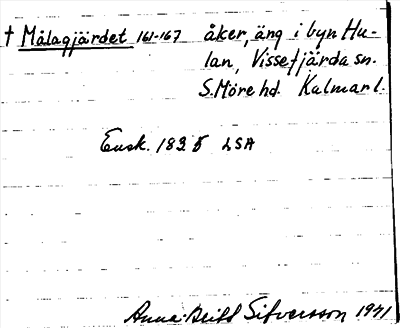 † Målagjärdet 161-167 åker, äng i byn Hu-
lan, Vissefjärda sn.
S. Möre hd. Kalmar l.
Ensk. 1825 LSA
Anna-Britt Sifversson 1971